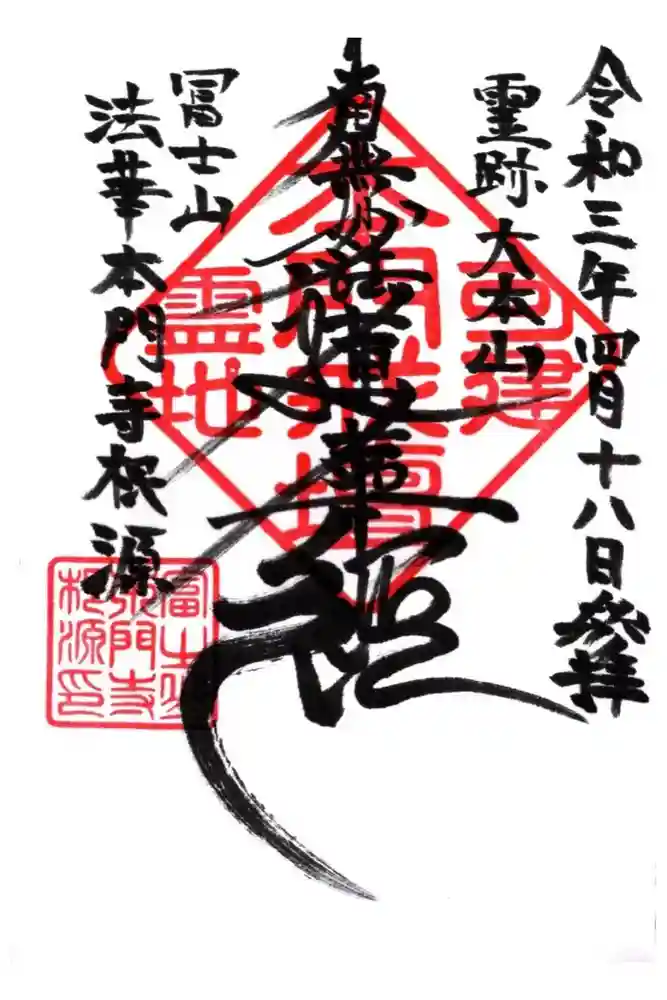 令和三年四月十八日参拝
霊跡 大本山
南無妙法蓮華経
冨士山
法華本門寺根源
可建
本門戒壇
霊地
冨士山
本門寺
根源印